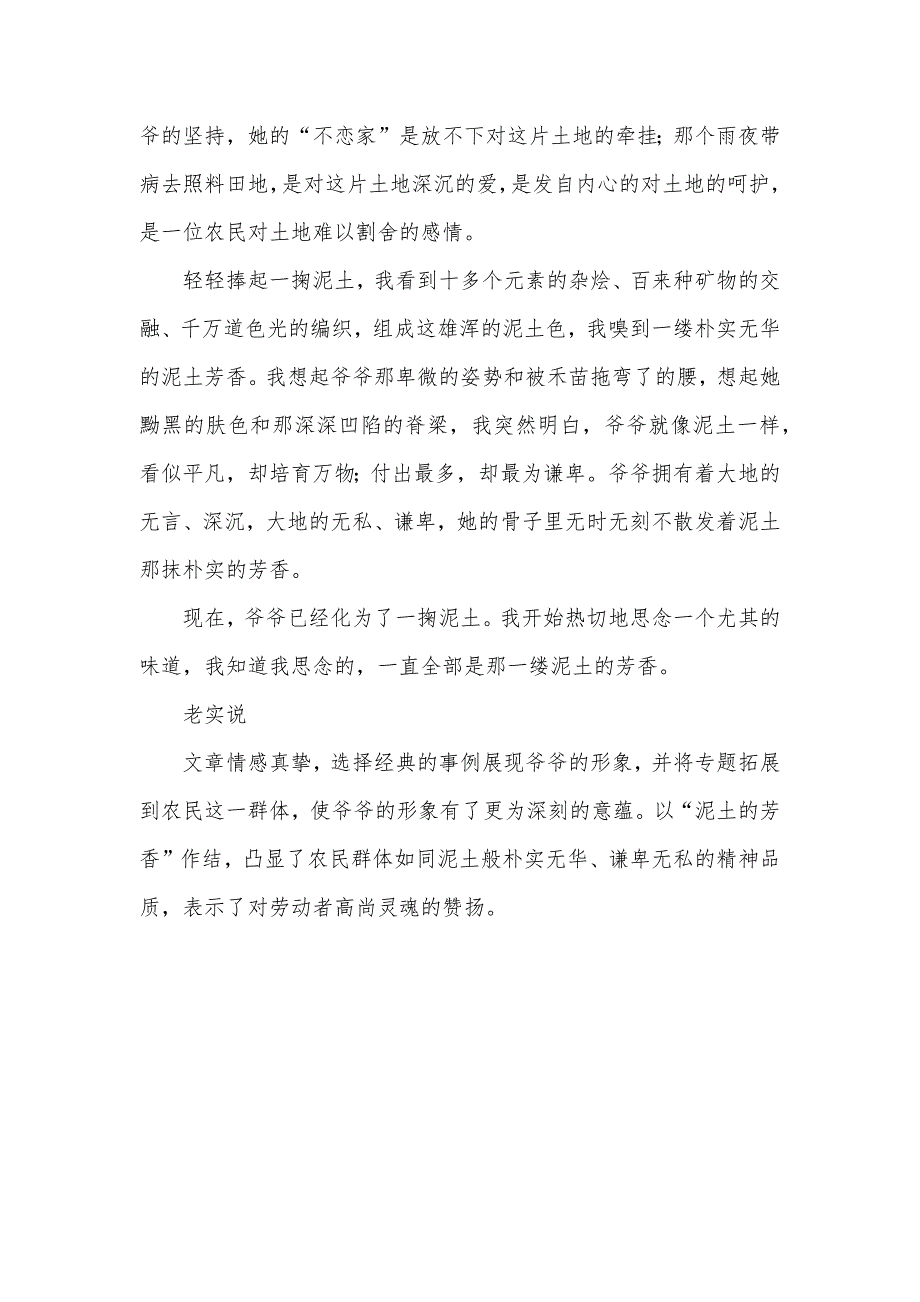 爷的坚持，她的“不恋家”是放不下对这片土地的牵挂；那个雨夜带
病去照料田地，是对这片土地深沉的爱，是发自内心的对土地的呵护，
是一位农民对土地难以割舍的感情。
轻轻捧起一掬泥土，我看到十多个元素的杂烩、百来种矿物的交
融、千万道色光的编织，组成这雄浑的泥土色，我嗅到一缕朴实无华
的泥土芳香。我想起爷爷那卑微的姿势和被禾苗拖弯了的腰，想起她
黝黑的肤色和那深深凹陷的脊梁，我突然明白，爷爷就像泥土一样，
看似平凡，却培育万物；付出最多，却最为谦卑。爷爷拥有着大地的
无言、深沉，大地的无私、谦卑，她的骨子里无时无刻不散发着泥土
那抹朴实的芳香。
现在，爷爷已经化为了一掬泥土。我开始热切地思念一个尤其的
味道，我知道我思念的，一直全部是那一缕泥土的芳香。
老实说
文章情感真挚，选择经典的事例展现爷爷的形象，并将专题拓展
到农民这一群体，使爷爷的形象有了更为深刻的意蕴。以“泥土的芳
香”作结，凸显了农民群体如同泥土般朴实无华、谦卑无私的精神品
质，表示了对劳动者高尚灵魂的赞扬。